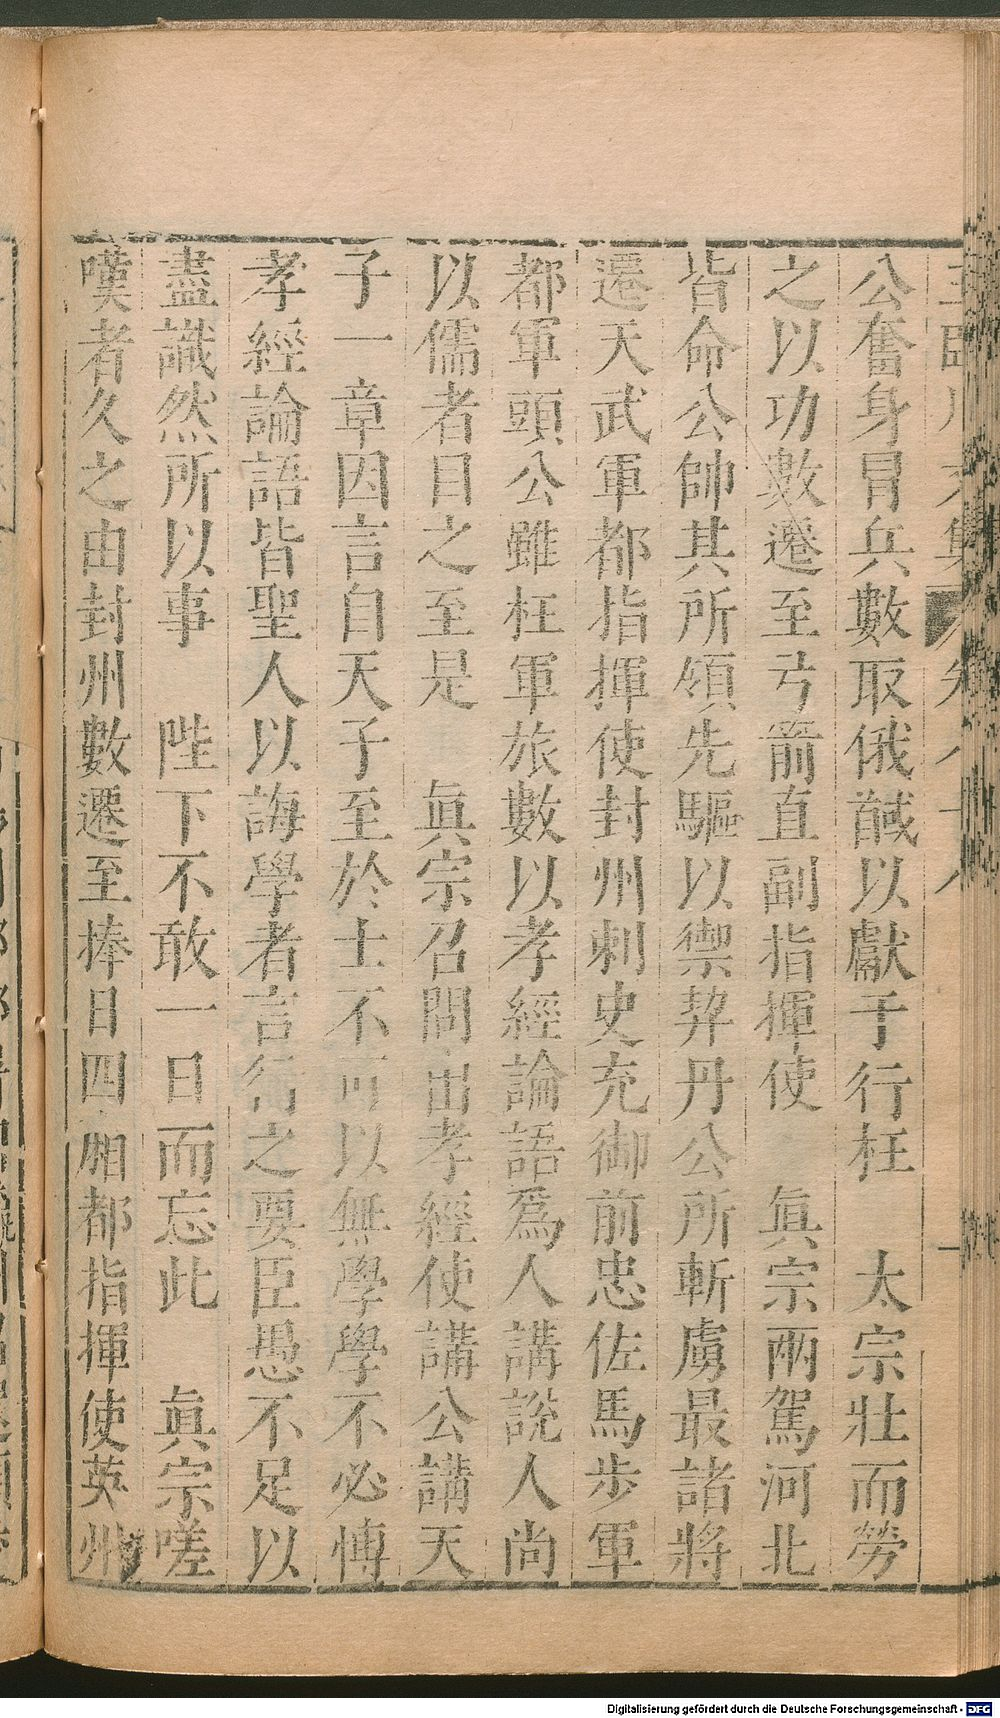 公奮身冒兵數取俄馘以獻于行在　太宗壯而勞
之以功數遷至弓箭直副指揮使　眞宗兩駕河北
皆命公帥其所領先驅以禦契丹公所斬虜最諸將
遷天武軍都指揮使封州刺史充御前忠佐馬步軍
都軍頭公雖在軍旅數以孝經論語爲人講說人尚
以儒者目之至是　眞宗召問出孝經使講公講天
子一章因言自天子至於士不可以無學學不必博
孝經論語皆聖人以誨學者言行之要臣愚不足以
盡識然所以事　陛下不敢一日而忘此　眞宗嗟
嘆者久之由封州數遷至捧日四廂都指揮使英州
Digitalisierung gefördert durch die Deutsche Forschungsgemeinschaft - DFG